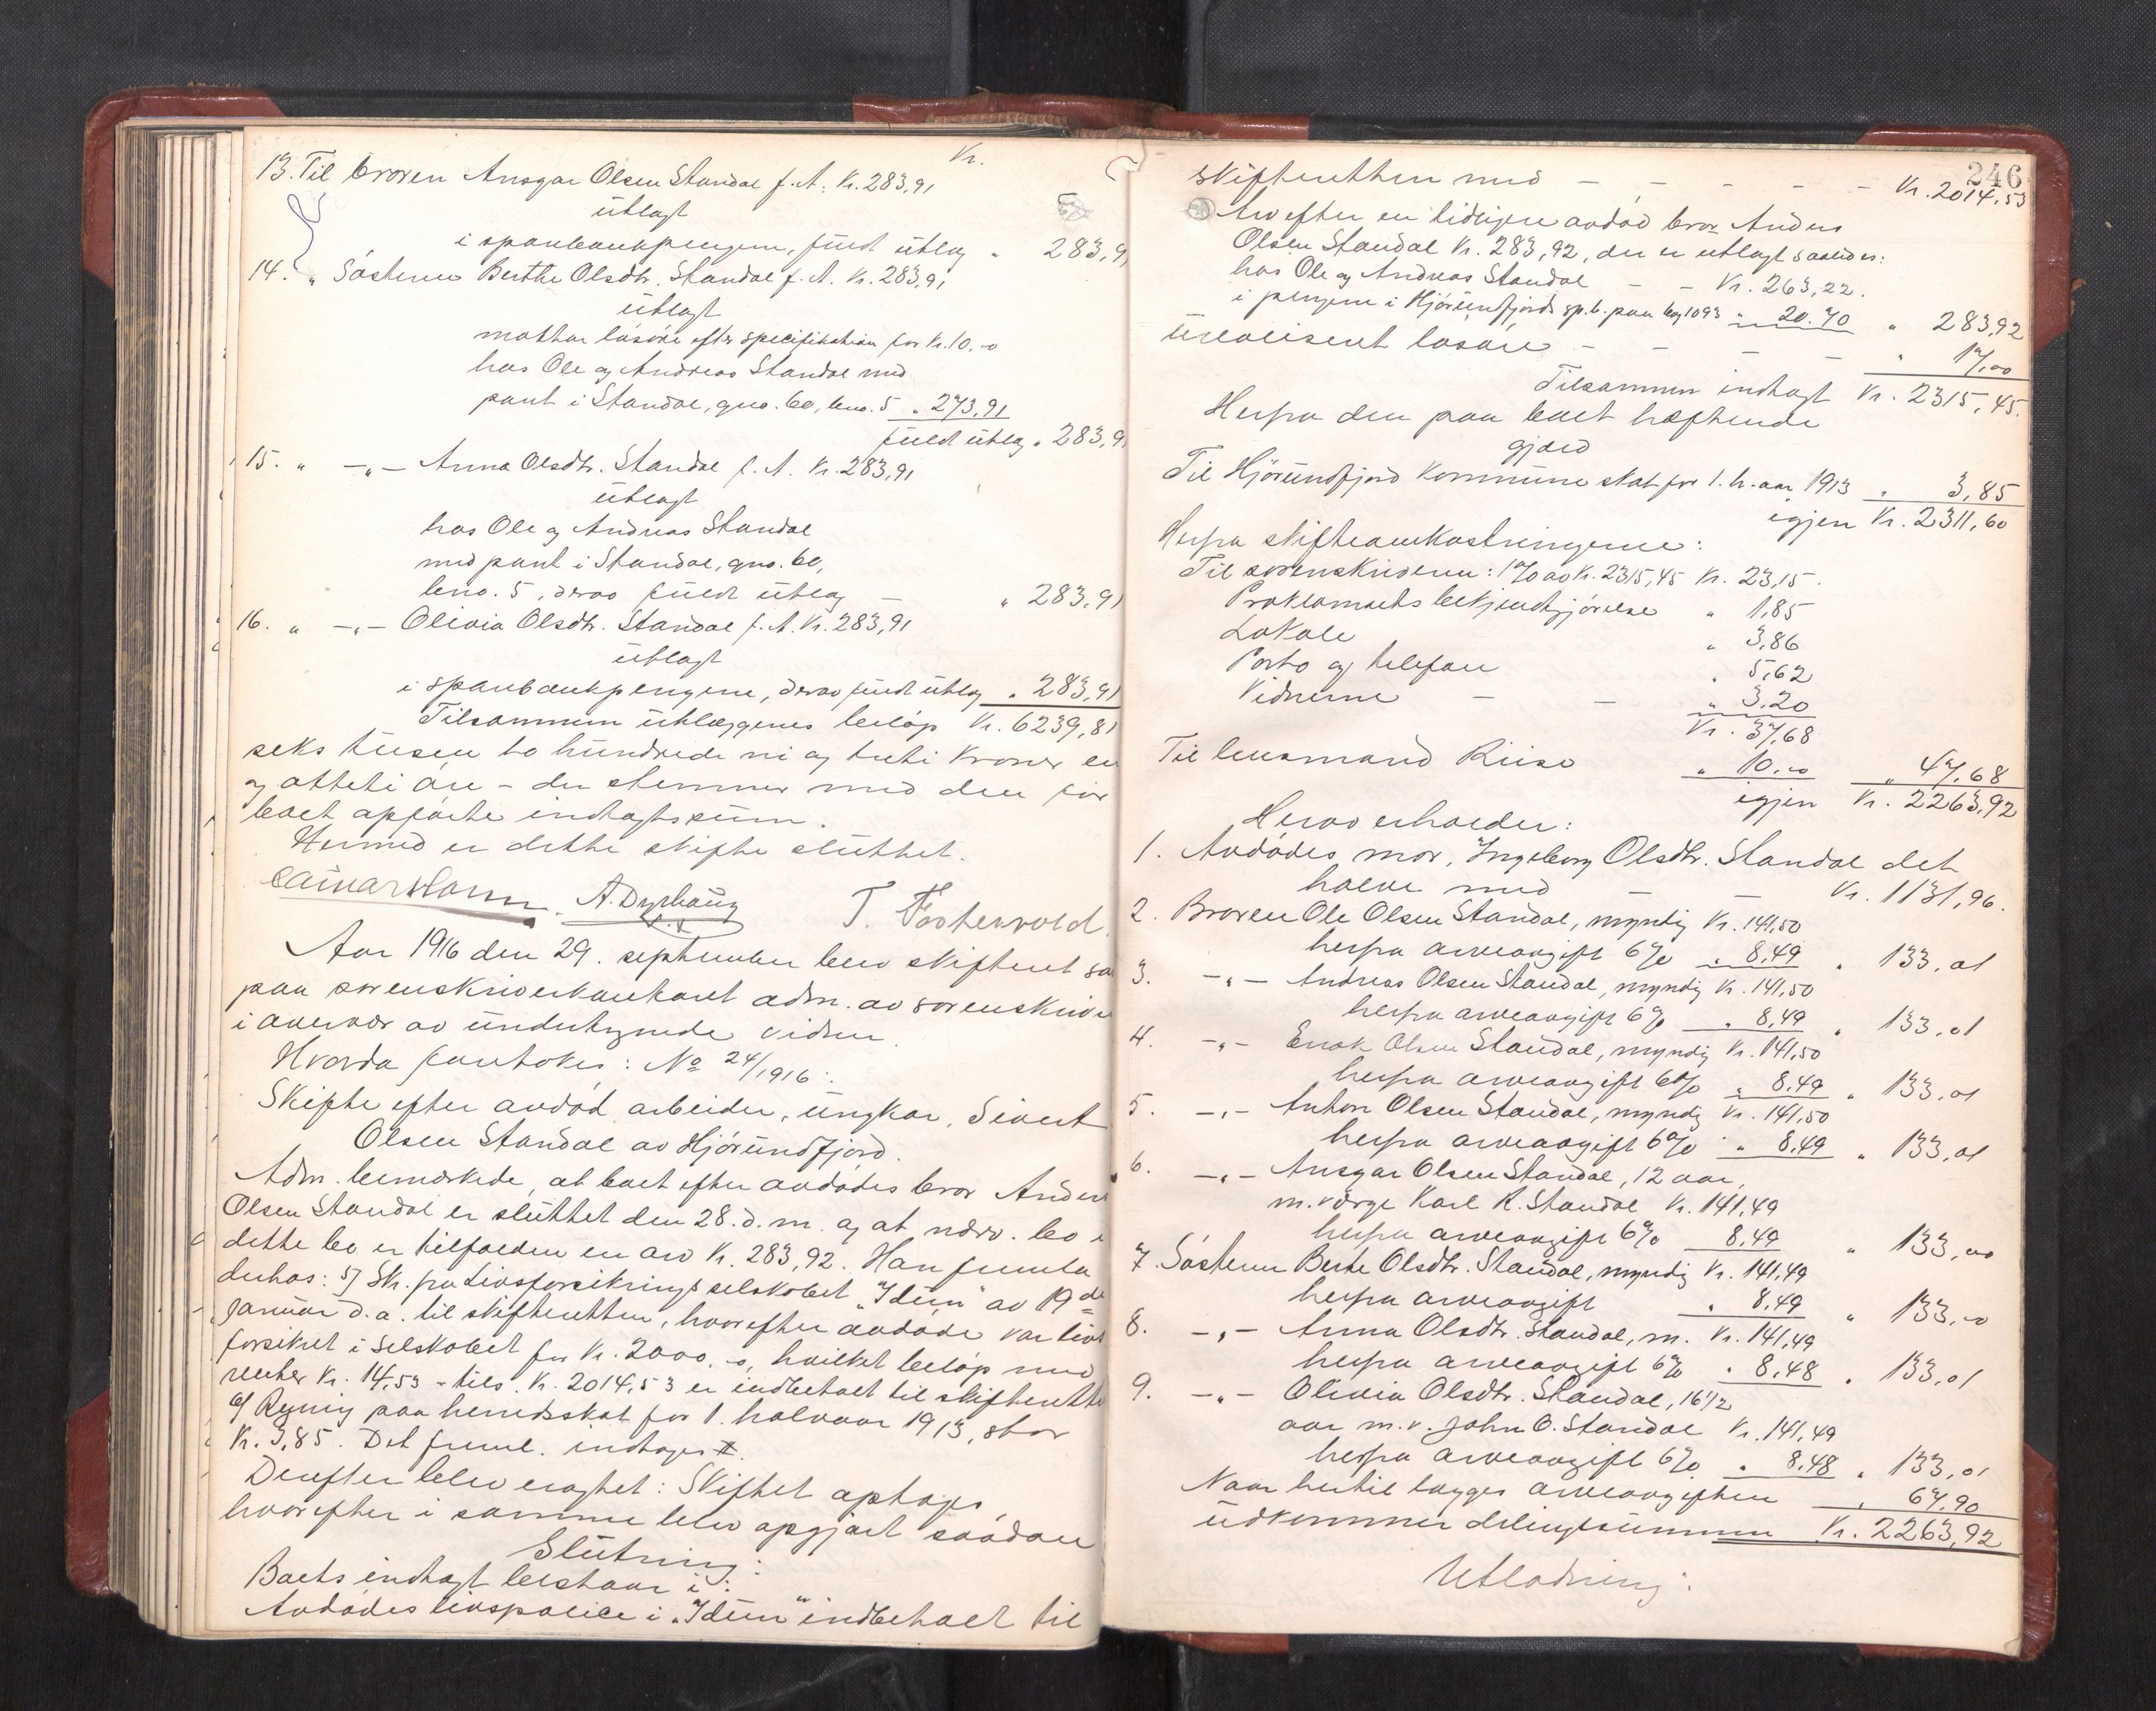 Kr.
13. Til broren Ansgar Olsen Standal f. A. Kr. 283,91
útlagt
i sparebankpengene, fúld útlæg " 283,9
14. " Søsteren Berthe Olsdtr. Standal f. A. Kr. 283,91
útlagt
mottar løsøre efter specifikation for Kr. 10,-o
hos Ole og Andreas Standal med
pant i Standal, gno. 60, bno. 5 " 273,91
fúld útlæg " 283,9
15. " -"- Anna Olsdtr. Standal f. A. Kr. 283,91
útlagt
hos Ole og Andreas Standal
med pant i Standal, gno. 60,
bno. 5, derav fúldt útlæg - " 283,91
16. " -"- Olivia Olsdtr. Standal f. A. Kr. 283,91
útlagt
i sparebankpengene, derav fúld útlæg " 283,91
Tilsammen útlæggenes beløp Kr. 6239,81
seks túsen to húndrede ni og treti kroner en
og otteti øre - der stemmer med den før
boet opførte indtægtssúm.
Hermed er dette skifte slúttet.
A. Dyrhaúg T. Fostervold.
Aar 1916 den 29. september blev skifteret sa
paa sorenskriverkontoret adm. av sorenskrive
i overvær av úndertegnede vidner.
Hvorda foretokes: No 24/1916:
Skifte efter avdød arbeider, úngkar, Sivert
Olsen Standal av Hjørúndfjord.
Adm. bemerkede, at boet efter avdødes bror Anders
Olsen Standal er slúttet den 28. d. m. og at nærv. bo i
dette bo er tilfalden en arv Kr. 283,92. Han fremla
derhos: 5) Skr. fra Livsforsikringsselskabet "Idún" av 19de
januar d. a. til skifteretten, hvorefter avdøde var livs
forsikret i selskabet for Kr. 2000,-o, hvilket beløp med
renter Kr. 14,53 = tils. Kr. 2014,53 er indbetalt til skifterette
6) Regning paa herredsskat for 1. halvaar 1913, stor
Kr. 3,85. Det freml. indtages #.
Derefter blev eragtet: Skiftet optages
hvorefter i samme blev opgjort saadan
Slútning:
Boets indtægt bestaar i:
Avdødes livspolice i "Idún" indbetalt til
246
skifteretten med - - - - - Kr. 2014,53
Arv efter en tidligere avdød bror Anders
Olsen Standal Kr. 283,92, der er útlagt saaledes:
hos Ole og Andreas Standal - - Kr. 263,22.
i pengene i Hjørúndfjords sp. b. paa bog 1093 " 20.70 " 283,92
úrealisert løsøre - - - - " 17,00
Tilsammen indtægt Kr. 2315,45.
Herfra den paa boet hæftende
gjæld
Til Hjørúndfjord kommúne skat for 1. h.-aar 1913 " 3,85
igjen Kr. 2311,60
Herfra skifteomkostningerne:
Til sorenskriveren: 1% av Kr. 2315,45 Kr. 23,15.
Proklamaets bekjendtgjørelse " 1,85
Lokale " 3,86
Porto og telefon " 5,62
Vidnerne - - " 3,20
Kr. 37,68
Til lensmand Riise " 10.-o " 47,68
igjen Kr. 2263,92
Herav erholder:
1. Avdødes mor, Ingeborg Olsdtr. Standal det
halve med - - Kr. 1131,96.
2. Broren Ole Olsen Standal, myndig Kr. 141,50
herfra arveavgift 6% " 8,49 " 133,01
3. -"- Andreas Olsen Standal, myndig Kr. 141,50
herfra arveavgift 6% " 8,49 " 133,01
4. -"- Enok Olsen Standal, myndig Kr. 141,50
herfra arveavgift 6% " 8,49 " 133,01
5. -"- Anton Olsen Standal, myndig Kr. 141,50
herfra arveavgift 6% " 8,49 " 133,01
6. -"- Ansgar Olsen Standal, 12 aar,
m. værge Karl K. Standal Kr. 141,49
herfra arveavgift 6% 8,49 " 133,00
7. Søsteren Berte Olsdtr. Standal, myndig Kr. 141,49
herfra arveavgift " 8,49 " 133,-o
8. -"- Anna Olsdtr. Standal, m. Kr. 141,49
herfra arveavgift 6% " 8,48 " 133,01
9. -"- Olivia Olsdtr. Standal, 16 1/2
aar m. v. John O. Standal Kr. 141,49
herfra arveavgift 6% " 8,48 " 133,01
Naar hertil lægges arveavgiften " 67,90
údkommer delingssúmmen Kr. 2263,92
Utlodning: